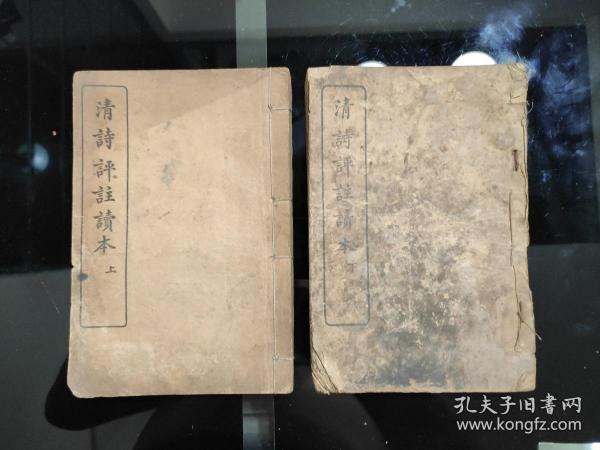 清詩評註讀本
上
清詩評註讀本
下
孔夫子旧書网
www.kongfz.com